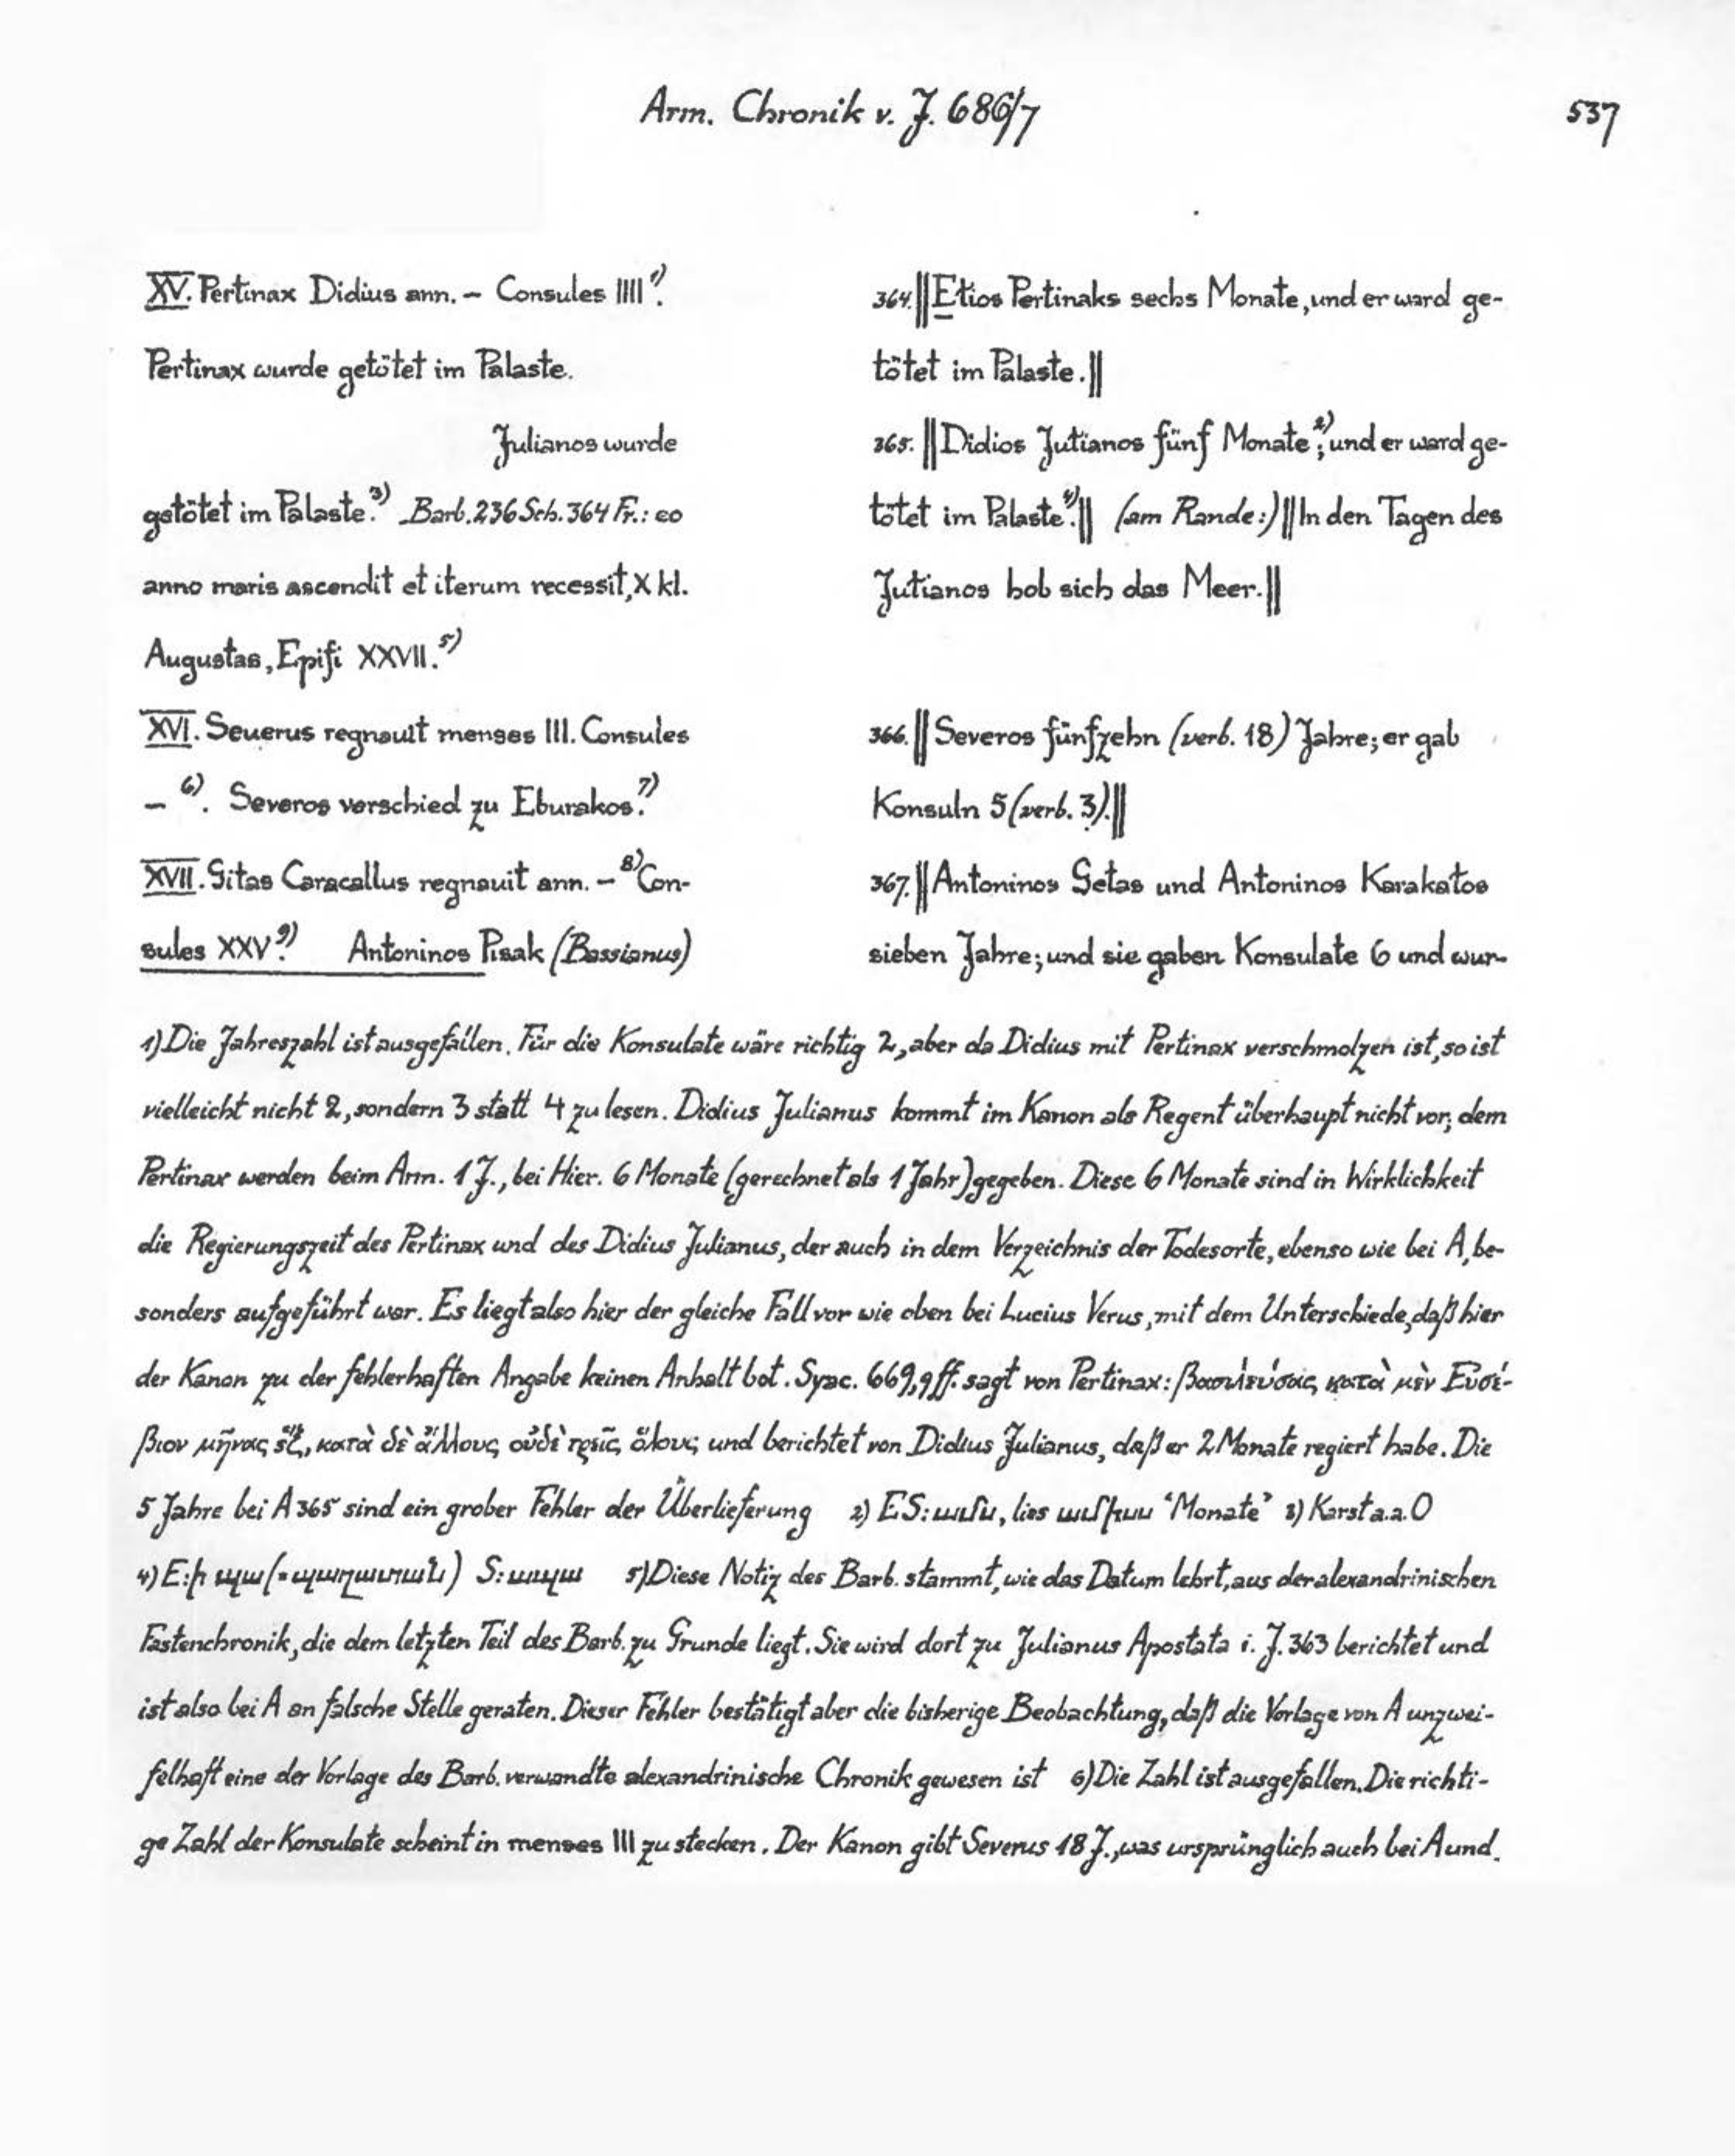 Arm. Chronik v. J. 686/7
537
XV. Pertinax Didius ann. – Consules IIII¹⁾.
Pertinax wurde getötet im Palaste.
Julianos wurde
getötet im Palaste.³⁾ Barb. 236 Sch. 364 Fr.: eo
anno maris ascendit et iterum recessit, X kl.
Augustas, Epifi XXVII.⁵⁾
XVI. Seuerus regnauit menses III. Consules
– ⁶⁾. Severos verschied zu Eburakos.⁷⁾
XVII. Gitas Caracallus regnauit ann. – ⁸⁾ Con-
sules XXV.⁹⁾ Antoninos Pisak (Bassianus)
364. ‖ Etios Pertinaks sechs Monate, und er ward ge-
tötet im Palaste. ‖
365. ‖ Didios Jutianos fünf Monate²⁾; und er ward ge-
tötet im Palaste⁴⁾. ‖ (am Rande:) ‖ In den Tagen des
Jutianos hob sich das Meer. ‖
366. ‖ Severos fünfzehn (verb. 18) Jahre; er gab
Konsuln 5 (verb. 3). ‖
367. ‖ Antoninos Getas und Antoninos Karakatos
sieben Jahre; und sie gaben Konsulate 6 und wur-
1) Die Jahreszahl ist ausgefallen. Für die Konsulate wäre richtig 2, aber da Didius mit Pertinax verschmolzen ist, so ist
vielleicht nicht 2, sondern 3 statt 4 zu lesen. Didius Julianus kommt im Kanon als Regent überhaupt nicht vor; dem
Pertinax werden beim Arm. 1 J., bei Hier. 6 Monate (gerechnet als 1 Jahr) gegeben. Diese 6 Monate sind in Wirklichkeit
die Regierungszeit des Pertinax und des Didius Julianus, der auch in dem Verzeichnis der Todesorte, ebenso wie bei A, be-
sonders aufgeführt war. Es liegt also hier der gleiche Fall vor wie oben bei Lucius Verus, mit dem Unterschiede, daß hier
der Kanon zu der fehlerhaften Angabe keinen Anhalt bot. Sync. 669,9 ff. sagt von Pertinax: βασιλεύσας κατὰ μὲν Εὐσέ-
βιον μῆνας ἕξ, κατὰ δὲ ἄλλους οὐδὲ τρεῖς ὅλους und berichtet von Didius Julianus, daß er 2 Monate regiert habe. Die
5 Jahre bei A 365 sind ein grober Fehler der Überlieferung 2) ES: ամս, lies ամիսս ‘Monate’ 3) Karst a.a.O
4) E: ի պա (= պաղատան) S: սապա 5) Diese Notiz des Barb. stammt, wie das Datum lehrt, aus der alexandrinischen
Fastenchronik, die dem letzten Teil des Barb. zu Grunde liegt. Sie wird dort zu Julianus Apostata i. J. 363 berichtet und
ist also bei A an falsche Stelle geraten. Dieser Fehler bestätigt aber die bisherige Beobachtung, daß die Vorlage von A unzwei-
felhaft eine der Vorlage des Barb. verwandte alexandrinische Chronik gewesen ist 6) Die Zahl ist ausgefallen. Die richti-
ge Zahl der Konsulate scheint in menses III zu stecken. Der Kanon gibt Severus 18 J., was ursprünglich auch bei A und